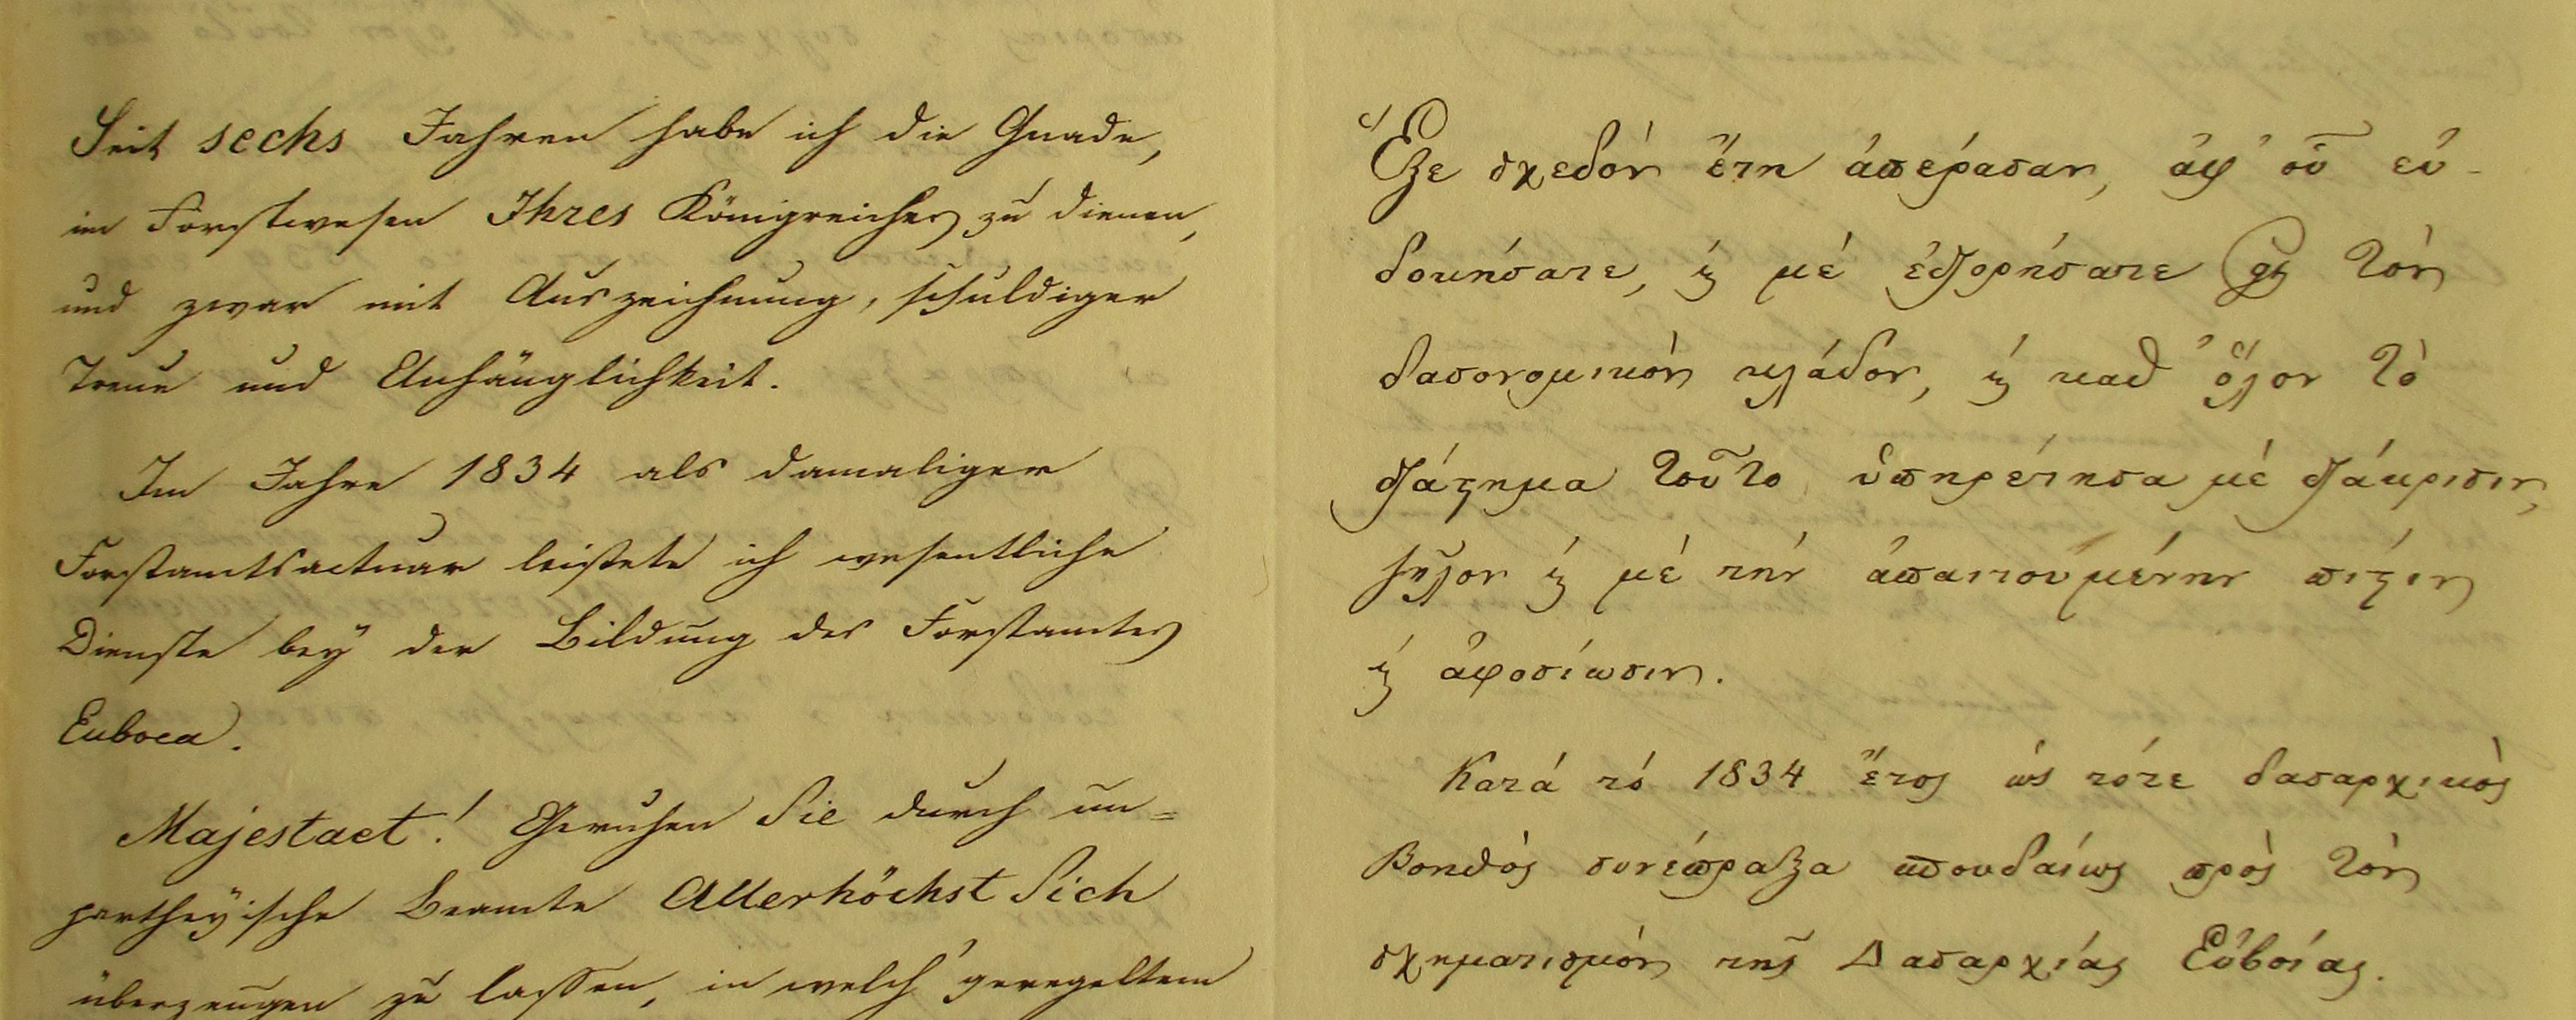 Seit sechs Jahren habe ich die Gnade,
im Forstwesen Ihres Königreiches zu dienen,
und zwar mit Auszeichnung, schuldiger
Treue und Anhänglichkeit.
Im Jahre 1834 als damaliger
Forstamtsactuar leistete ich wesentliche
Dienste bey der Bildung des Forstamtes
Euboea.
Majestaet! Geruhen Sie durch un=
partheyische Beamte Allerhöchst Sich
überzeugen zu lassen, in welch' geregeltem
Ἓξε σχεδόν ἔτη ἀπέρασαν, ἀφ' οὗ εὐ-
δοκήσατε, ϗ μέ ἐδιορήσατε εἰς τόν
δασονομικόν κλάδον, ϗ καθ' ὅλον τό
διάστημα τοῦτο ὑπηρέτησα μέ διάκρισιν,
ζῆλον ϗ μέ τήν ἀπαιτουμένην πίστιν
ϗ ἀφοσίωσιν.
Κατά τό 1834 ἔτος ὡς τότε δασαρχικός
Βοηθός συνέπραξα σπουδαίως πρός τόν
σχηματισμόν τῆς Δασαρχίας Εὐβοίας.